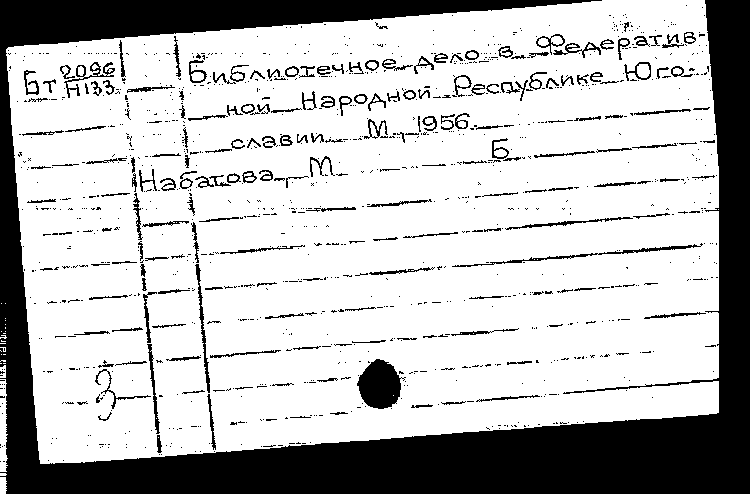 Бт 2096
Н133
Библиотечное дело в Федератив-
ной Народной Республике Юго-
славии М., 1956.
Б
Набатова, М
З